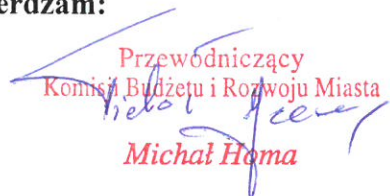 erdzam:
Przewodniczący
Komisji Budżetu i Rozwoju Miasta
Michał Homa